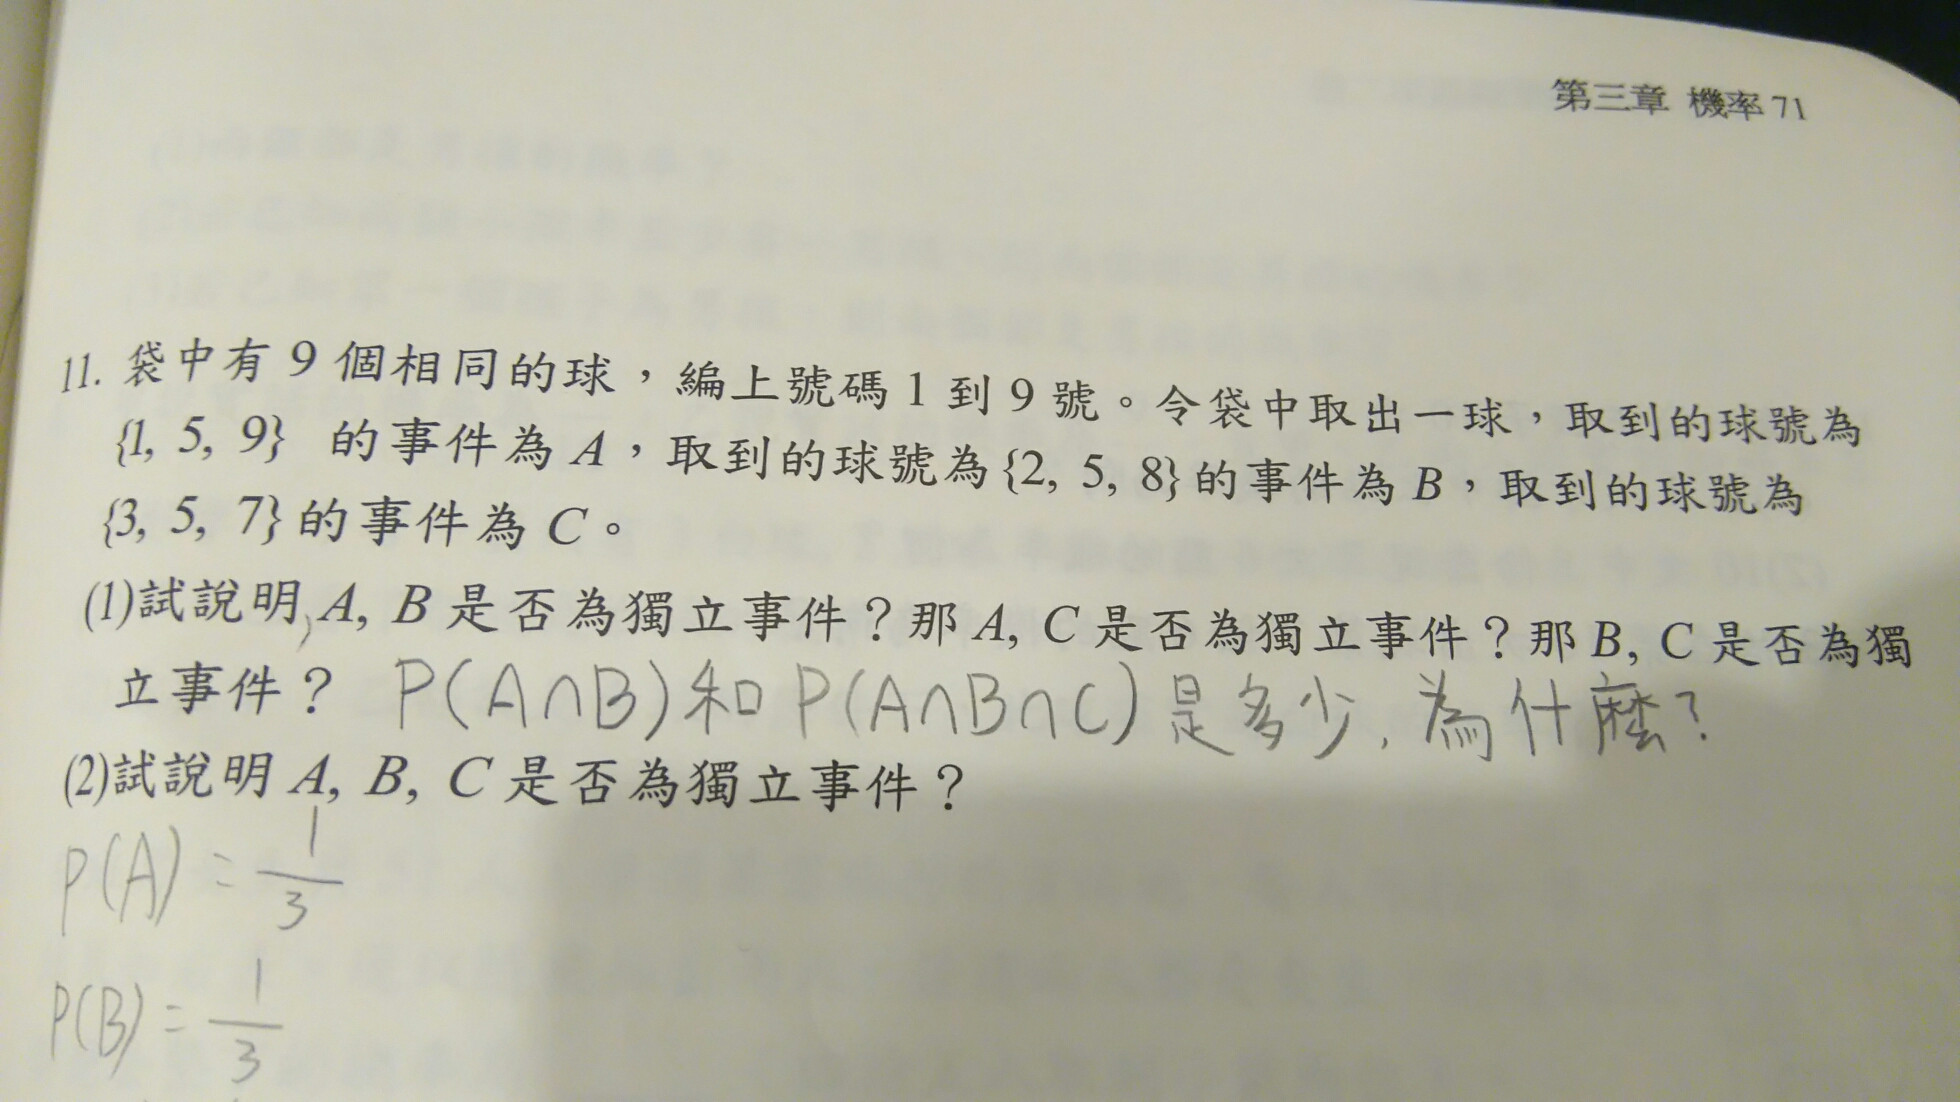 第三章 機率 71
11. 袋中有 9 個相同的球，編上號碼 1 到 9 號。令袋中取出一球，取到的球號為
{1, 5, 9} 的事件為 A，取到的球號為{2, 5, 8}的事件為 B，取到的球號為
{3, 5, 7}的事件為 C。
(1)試說明 A, B 是否為獨立事件？那 A, C 是否為獨立事件？那 B, C 是否為獨
立事件？ P(A∩B)和 P(A∩B∩C)是多少, 為什麼?
(2)試說明 A, B, C 是否為獨立事件？
P(A) = 1/3
P(B) = 1/3